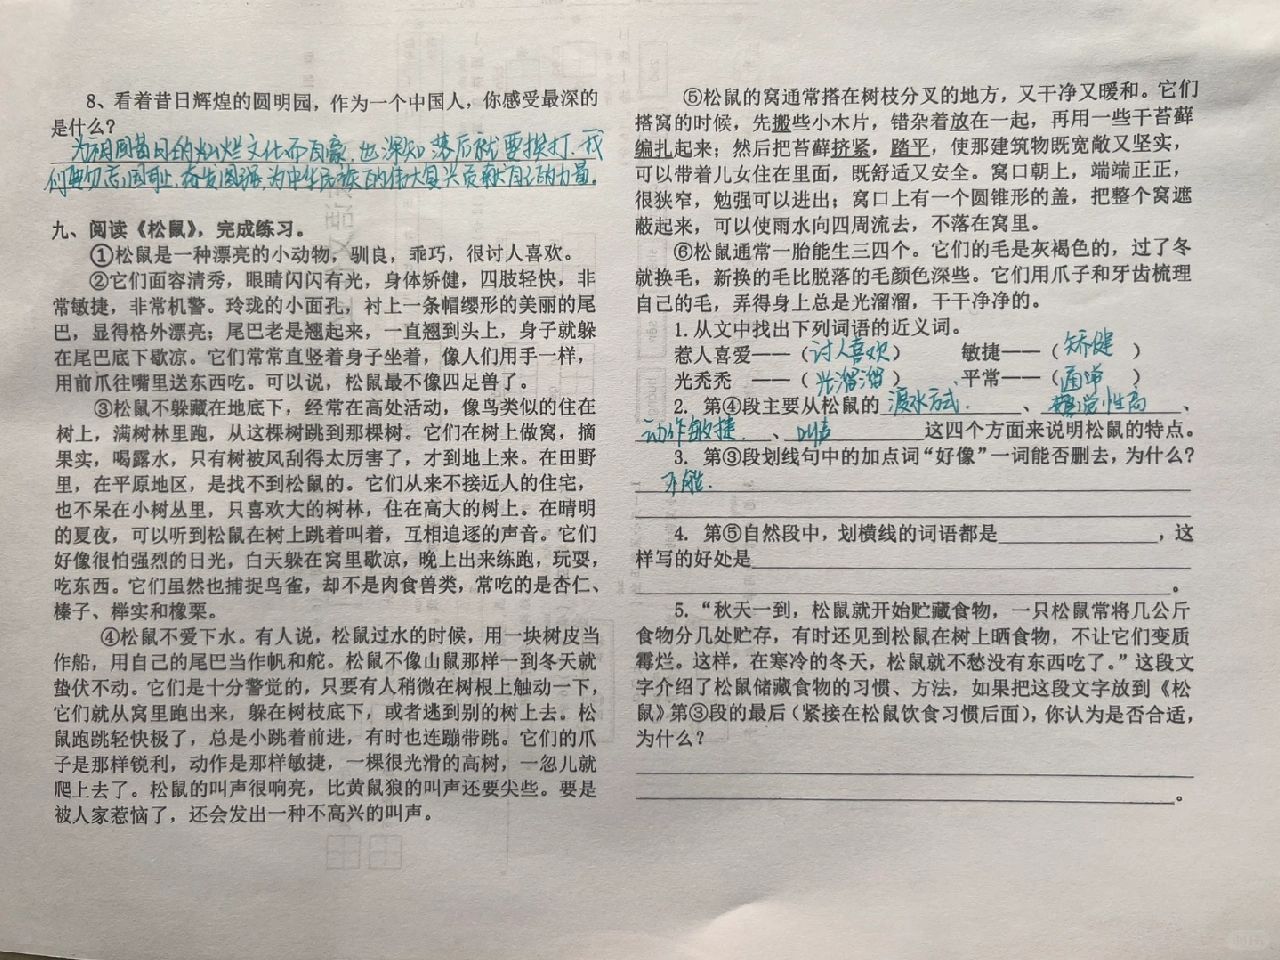 8、看着昔日辉煌的圆明园，作为一个中国人，你感受最深的
是什么？
为祖国昔日的灿烂文化而自豪，也深知落后就要挨打，我
们要勿忘国耻，奋发图强，为中华民族的伟大复兴贡献自己的力量。
九、阅读《松鼠》，完成练习。
①松鼠是一种漂亮的小动物，驯良，乖巧，很讨人喜欢。
②它们面容清秀，眼睛闪闪有光，身体矫健，四肢轻快，非
常敏捷，非常机警。玲珑的小面孔，衬上一条帽缨形的美丽的尾
巴，显得格外漂亮；尾巴老是翘起来，一直翘到头上，身子就躲
在尾巴底下歇凉。它们常常直竖着身子坐着，像人们用手一样，
用前爪往嘴里送东西吃。可以说，松鼠最不像四足兽了。
③松鼠不躲藏在地底下，经常在高处活动，像鸟类似的住在
树上，满树林里跑，从这棵树跳到那棵树。它们在树上做窝，摘
果实，喝露水，只有树被风刮得太厉害了，才到地上来。在田野
里，在平原地区，是找不到松鼠的。它们从来不接近人的住宅，
也不呆在小树丛里，只喜欢大的树林，住在高大的树上。在晴明
的夏夜，可以听到松鼠在树上跳着叫着，互相追逐的声音。它们
好像很怕强烈的日光，白天躲在窝里歇凉，晚上出来练跑，玩耍，
吃东西。它们虽然也捕捉鸟雀，却不是肉食兽类，常吃的是杏仁、
榛子、榉实和橡栗。
④松鼠不爱下水。有人说，松鼠过水的时候，用一块树皮当
作船，用自己的尾巴当作帆和舵。松鼠不像山鼠那样一到冬天就
蛰伏不动。它们是十分警觉的，只要有人稍微在树根上触动一下，
它们就从窝里跑出来，躲在树枝底下，或者逃到别的树上去。松
鼠跑跳轻快极了，总是小跳着前进，有时也连蹦带跳。它们的爪
子是那样锐利，动作是那样敏捷，一棵很光滑的高树，一忽儿就
爬上去了。松鼠的叫声很响亮，比黄鼠狼的叫声还要尖些。要是
被人家惹恼了，还会发出一种不高兴的叫声。
⑤松鼠的窝通常搭在树枝分叉的地方，又干净又暖和。它们
搭窝的时候，先搬些小木片，错杂着放在一起，再用一些干苔藓
编扎起来；然后把苔藓挤紧，踏平，使那建筑物既宽敞又坚实，
可以带着儿女住在里面，既舒适又安全。窝口朝上，端端正正，
很狭窄，勉强可以进出；窝口上有一个圆锥形的盖，把整个窝遮
蔽起来，可以使雨水向四周流去，不落在窝里。
⑥松鼠通常一胎能生三四个。它们的毛是灰褐色的，过了冬
就换毛，新换的毛比脱落的毛颜色深些。它们用爪子和牙齿梳理
自己的毛，弄得身上总是光溜溜，干干净净的。
1. 从文中找出下列词语的近义词。
惹人喜爱——（讨人喜欢） 敏捷——（矫健）
光秃秃 ——（光溜溜） 平常——（通常）
2. 第④段主要从松鼠的 渡水方式、警觉性高、
动作敏捷、叫声 这四个方面来说明松鼠的特点。
3. 第③段划线句中的加点词“好像”一词能否删去，为什么？
不能.
4. 第⑤自然段中，划横线的词语都是，这
样写的好处是
。
5. “秋天一到，松鼠就开始贮藏食物，一只松鼠常将几公斤
食物分几处贮存，有时还见到松鼠在树上晒食物，不让它们变质
霉烂。这样，在寒冷的冬天，松鼠就不愁没有东西吃了。”这段文
字介绍了松鼠储藏食物的习惯、方法，如果把这段文字放到《松
鼠》第③段的最后（紧接在松鼠饮食习惯后面），你认为是否合适，
为什么？
。